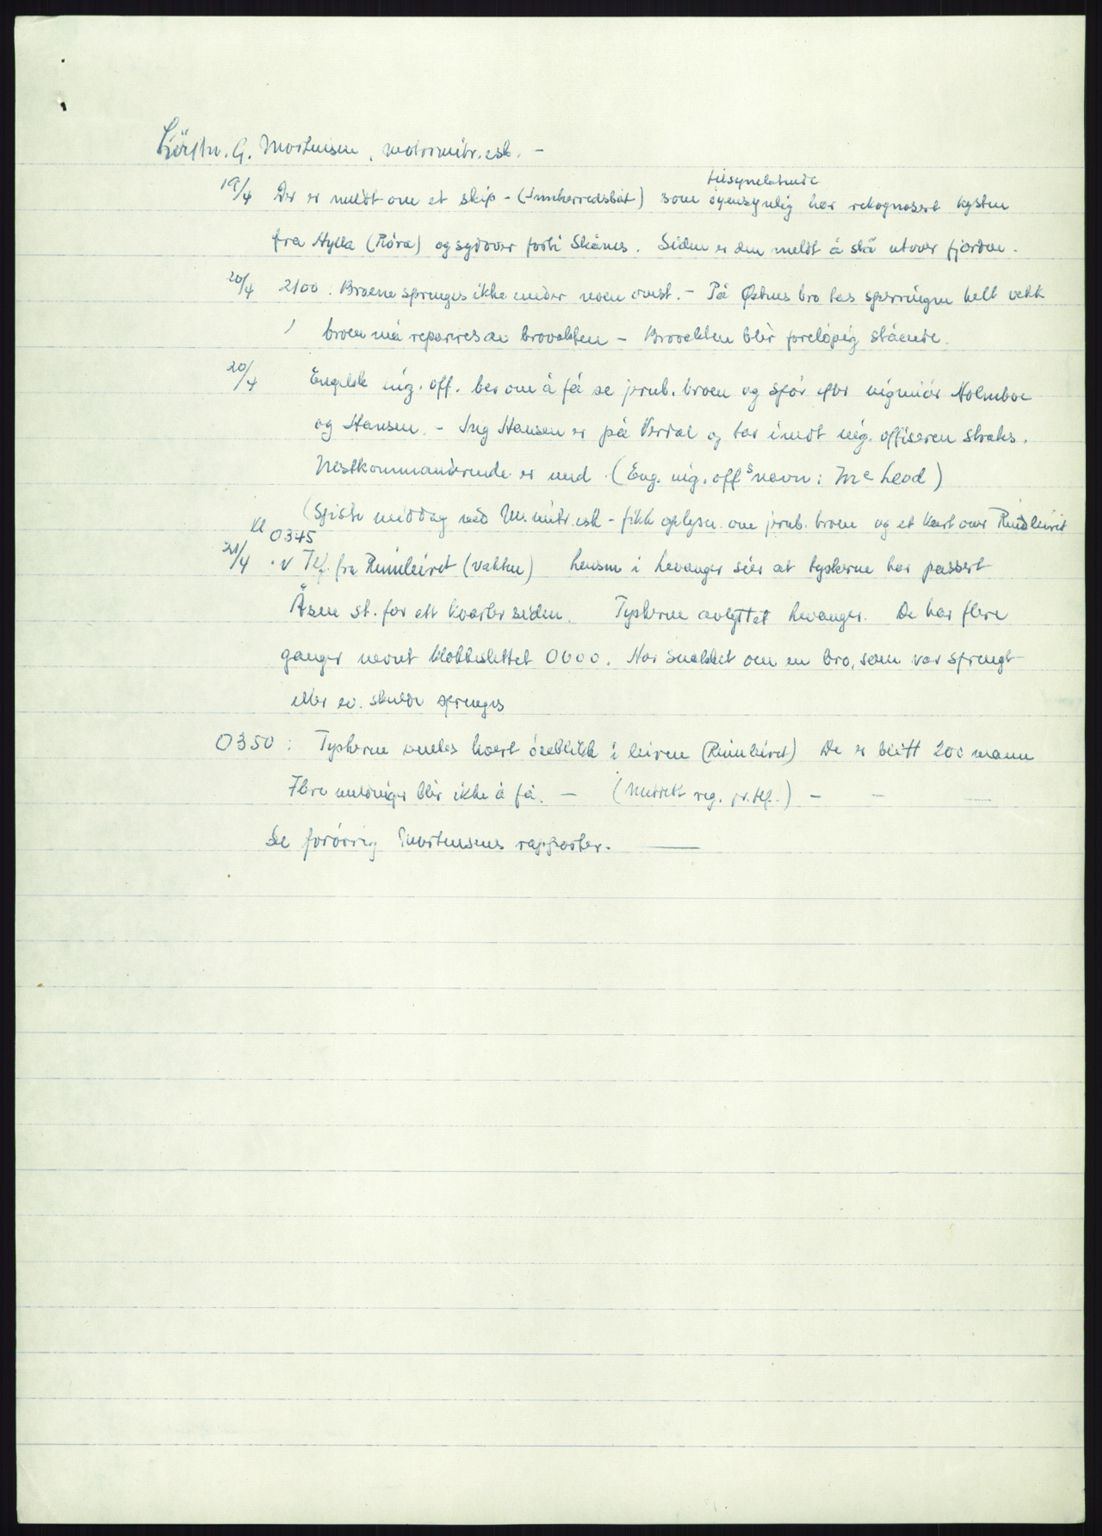 Löitn. G. Mortensen, motormitr.esk. -
tilsynelatende
19/4 Der er meldt om et skip - (Innherredsbåt) som öyensynlig har rekognosert kysten
fra Hylla (Röra) og sydover forbi Skånes. Siden er den meldt å stå utover fjorden.
20/4 2100 : Broene sprenges ikke under noen omst. - På Östnes bro tas sperringen helt vekk
broen må repareres av brovakten - Brovakten blir forelöpig stående.
20/4 Engelsk ing. off. ber om å få se jernb. broen og spör efter ingeniör Holmboe
og Hansen. - Ing Hansen er på Verdal og tar imot ing. offiseren straks.
Nestkommanderende er med. (Eng. ing. offs navn: Mc Leod)
(Spiste middag ved M.mitr.esk - fikk oplysn. om jernb. broen og et kart over Rindleiret
kl 0345
21/4 Tlf. fra Rinnleiret (vakten) Lensm i Levanger sier at tyskerne har passert
Åsen st. for ett kvarter siden. Tyskerne avlyttet Levanger. De har flere
ganger nevnt klokkeslettet 0600. Har snakket om en bro, som var sprengt
eller ev. skulde sprenges
0350 : Tyskerne ventes hvert öieblikk i leiren (Rinnleiret) De er blitt 200 mann
Flere meldinger blir ikke å få. - (Mottatt reg. pr. tlf.) - -
Se forövrig Mortensens rapporter.